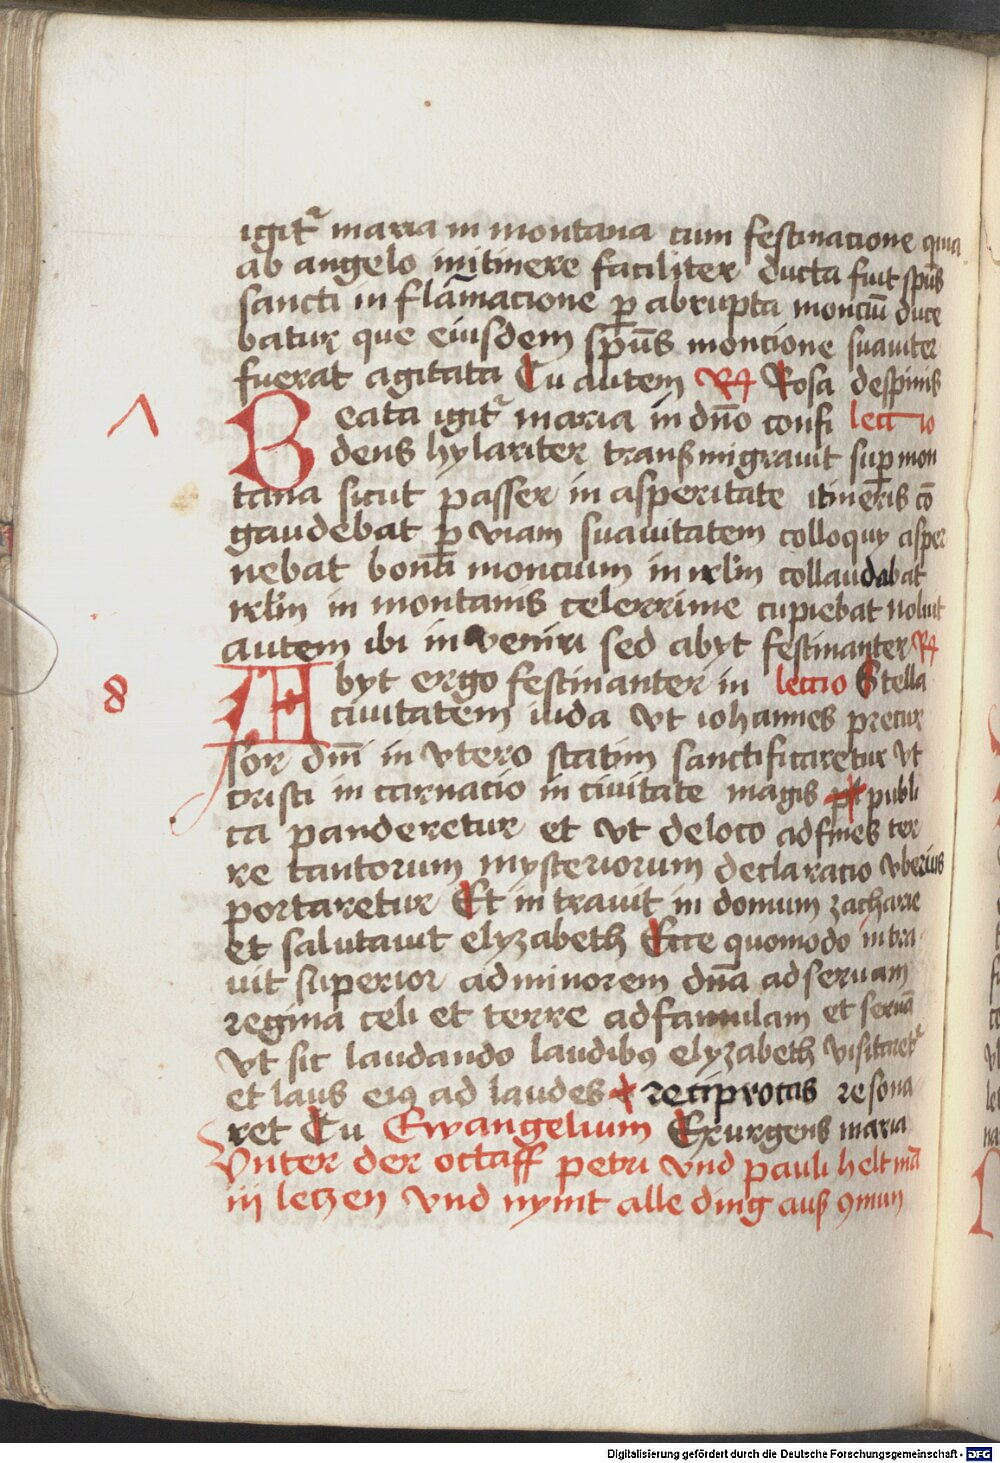 igit᷑ maria in montana cum festinacione quia
ab angelo initinere faciliter ducta fuit spūs
sancti in flāmacione ꝑ abrupta monciū duce
batur que eiusdem spūs moncione suauiter
fuerat agitata Tu autem R℣ Rosa despinis
Beata igit᷑ maria in dn̄o confi lectio
7
dens hylariter transmigrauit suꝑ mon
tana sicut passer in asperitate itineris cō
gaudebat ꝑ viam suauitatem colloquy asper
nebat bona moncium in irlm̄ collaudabat
irlm̄ in montanis celerrime cupiebat noluit
autem ibi inveniri sed abyt festinanter R℣
8
Abyt ergo festinanter in lectio Stella
ciuitatem iuda vt iohannes precur
sor dn̄i in vtero statim sanctificaretur vt
cristi in carnacio in ciuitate magis publi
ca panderetur et vt deloco adfines ter
re tantorum mysteriorum declaracio vberius
portaretur Et in trauit in domum zacharie
et salutauit elyzabeth Ecce quomodo intra
uit superior adminorem dn̄a adseruam
regina celi et terre adfamulam et seruā
vt sic laudando laudibꝫ elyzabeth visitaret᷑
et laus eiꝫ ad laudes reciprocas resona
ret Tu Ewangelium Exurgens maria
Vnter der octaff petri vnd pauli helt mā
iij leczen vnd nymt alle ding auß ꝯmun
Digitalisierung gefördert durch die Deutsche Forschungsgemeinschaft - DFG